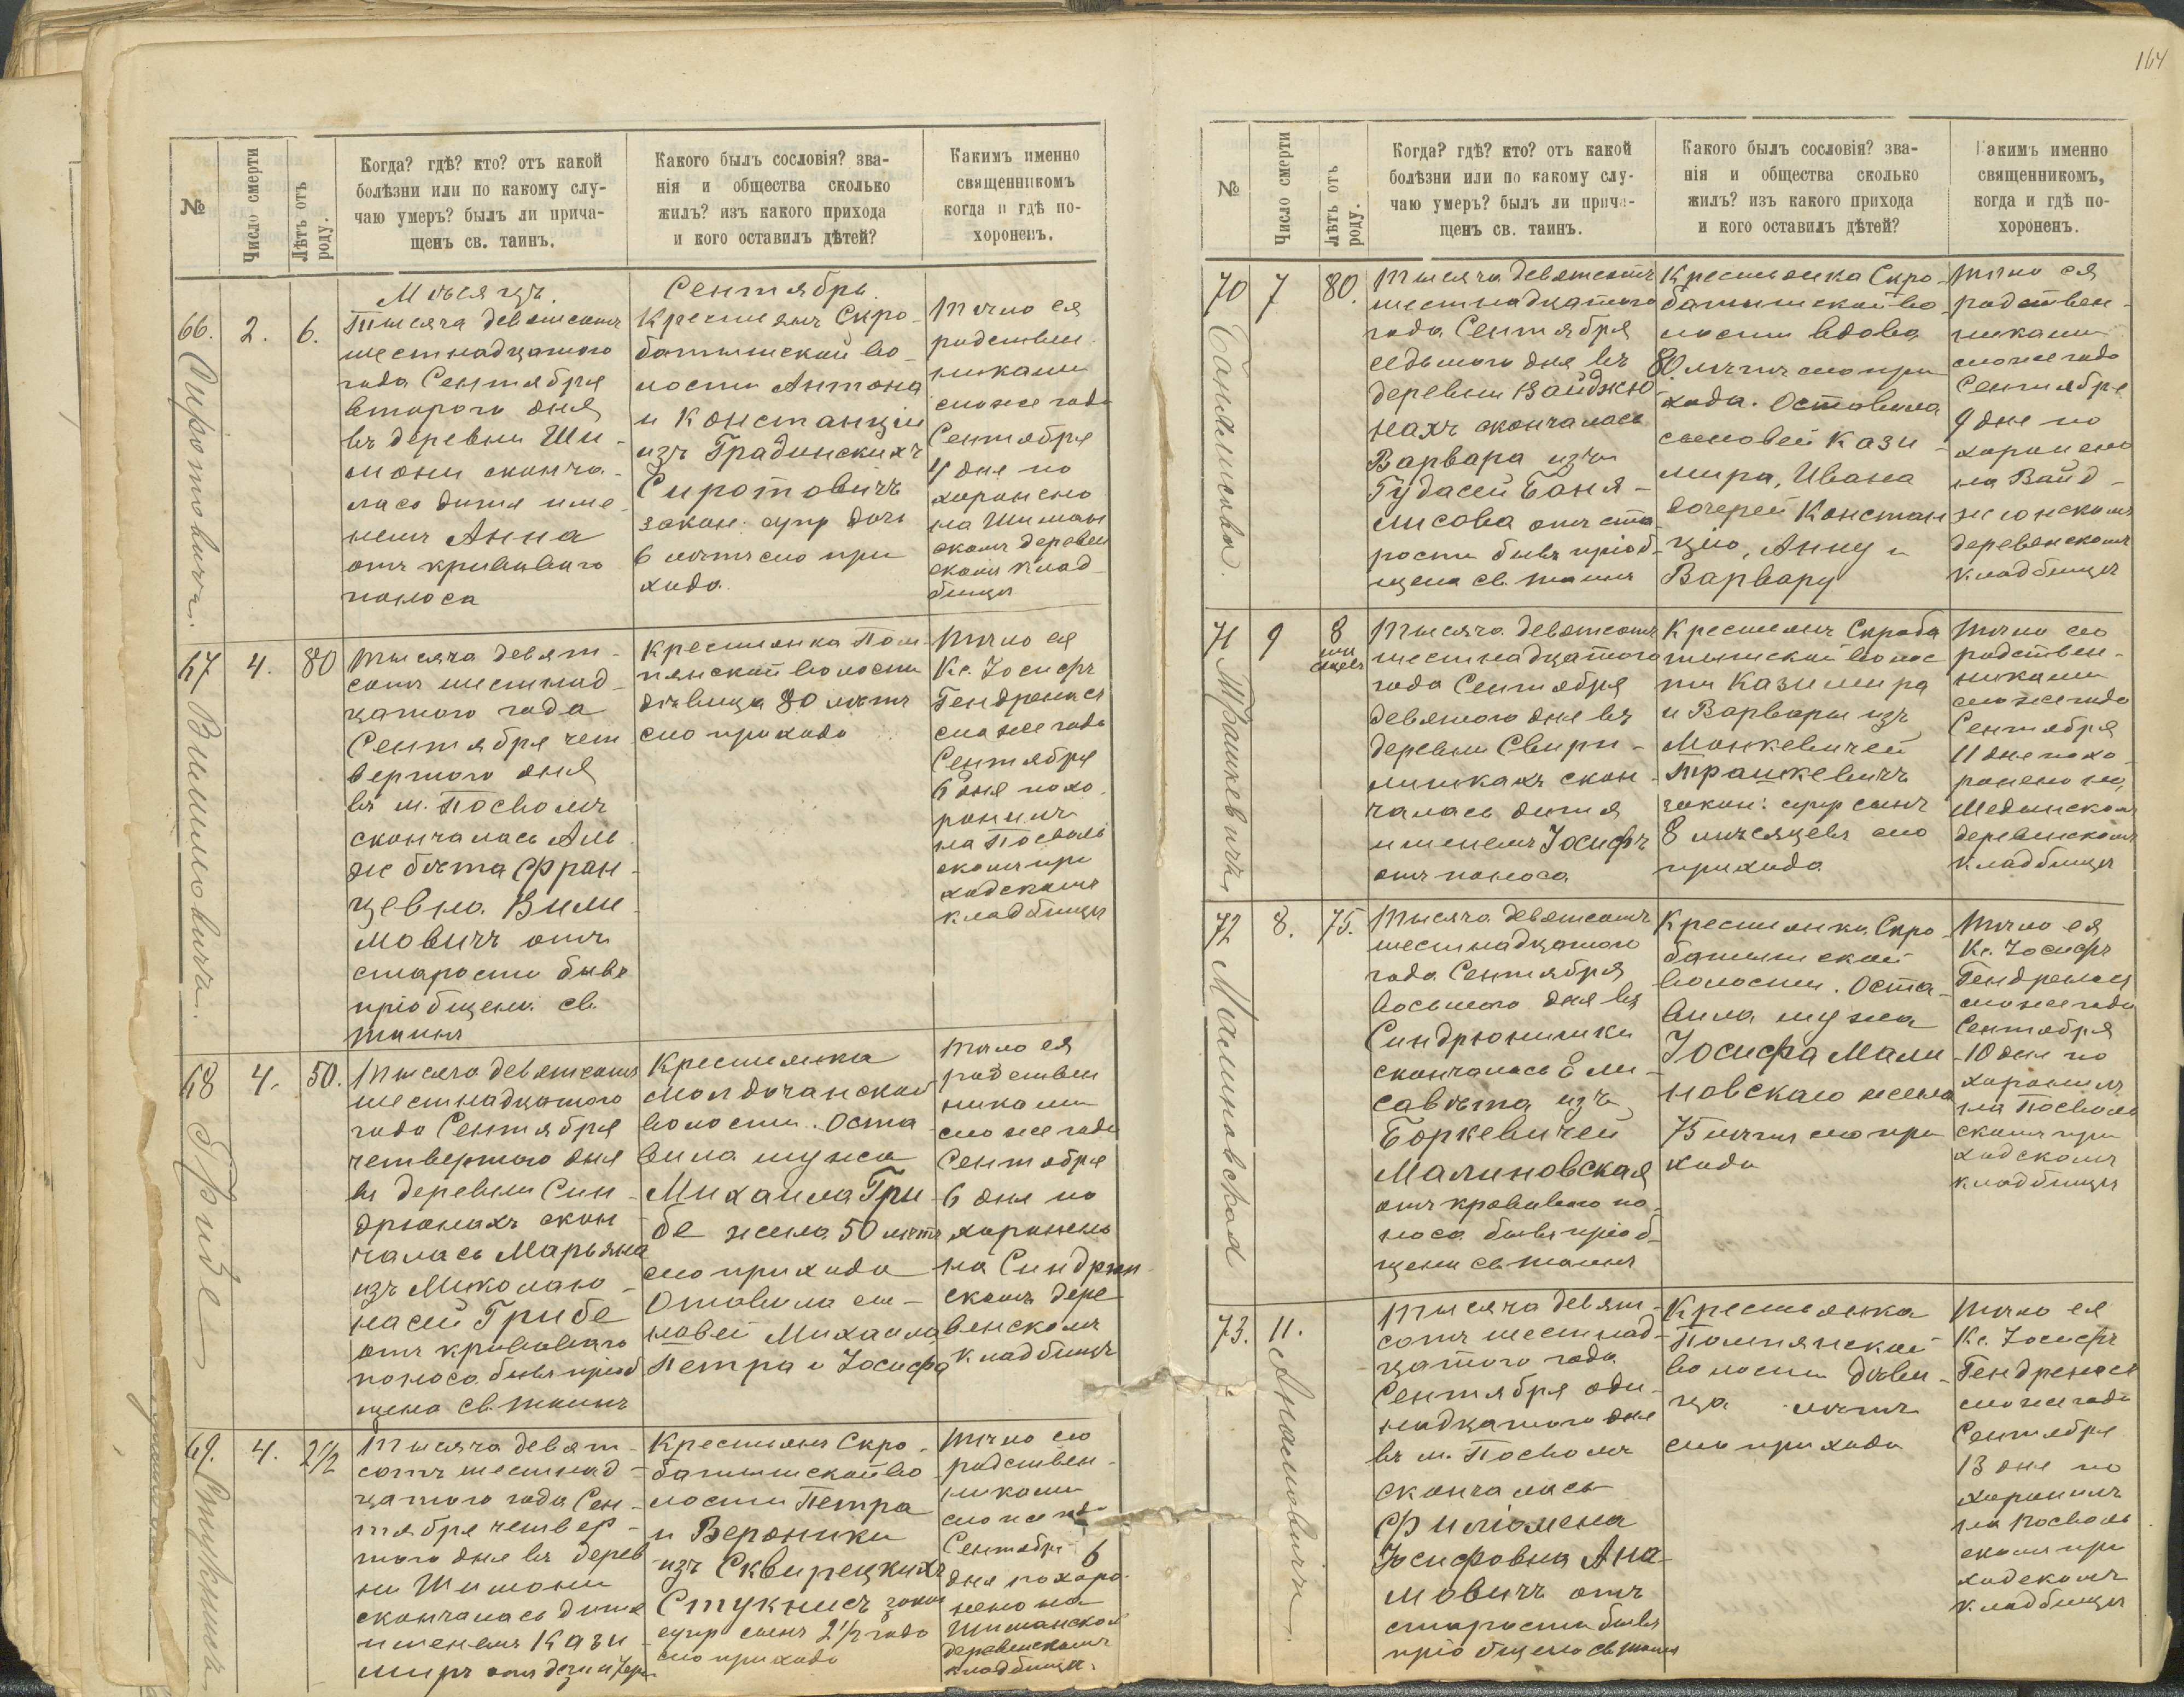 164
№
Число смерти
Лѣтъ отъ роду.
Когда? гдѣ? кто? отъ какой
болѣзни или по какому слу-
чаю умеръ? былъ ли прича-
щенъ св. таинъ.
Какого былъ сословія? зва-
нія и общества сколько
жилъ? изъ какого прихода
и кого оставилъ дѣтей?
Какимъ именно
священникомъ
когда и гдѣ по-
хороненъ.
Мѣсяцъ.
Сентябрь.
66.
Сиротовичъ.
2.
6.
Тысяча девятсотъ
шестнадцатого
года Сентября
второго дня
въ деревни Ши-
мони сконча-
лась дитя име-
немъ Анна
отъ криваваго
поноса
Крестьянъ Скро-
батишской во-
лости Антона
и Констанціи
изъ Градинскихъ
Сиротовичъ
закон: супр дочь
6 лѣтъ сего при
хода.
Тѣло ея
родствен
никами
сегоже года
Сентября
4 дня по
хоронено
на Шиман
скомъ деревен
скомъ клад
бищѣ
67
Вилимовичъ.
4.
80
Тысяча девят-
сотъ шестнад-
цатого года
Сентября чет
вертого дня
въ м. Посволъ
скончалась Аль
жбѣта Фран-
цевна Вили
мовичъ отъ
старости бывъ
пріобщена св.
таинъ
Крестьянка Пом-
пянской волости
дѣвица 80 лѣтъ
сего прихода
Тѣло ея
Кс. Іосифъ
Гендренасъ
сегоже года
Сентября
6 дня похо
ронилъ
на Посволь
скомъ при
ходскомъ
кладбищѣ
68
Грибе
4.
50.
Тысяча девятсотъ
шестнадцатого
года Сентября
четвертого дня
въ деревни Син-
дрюнахъ скон
чалась Марьяна
изъ Миколаю-
насей Грибе
отъ кривавого
поноса бывъ пріоб
щена св. таинъ
Крестьянка
молдочанской
волости. Оста
вила мужа
Михаила Гри-
бе жила 50 лѣтъ
сего прихода
Отавила сы-
новей Михаила
Петра и Іосифа
Тѣло ея
родствен
никами
сегоже года
Сентября
6 дня по
хоронено
на Синдрюн
скомъ дере
венскомъ
кладбищѣ
69.
Стукнисъ
4.
2 1/2
Тысяча девят-
сотъ шестнад-
цатого года Сен-
тября четвер-
того дня въ дерев
ни Шимони
скончалась дитя
именемъ Кази
миръ отъ
Крестьянъ Скро-
батишской во
лости Петра
и Вероники
изъ Сквирецкихъ
Стукнисъ закон
супр сынъ 2 1/2 года
сего прихода
Тѣло его
родствен-
никами
сегоже года
Сентября 6
дня похоро
нено на
Шиманском
деревенскомъ
кладбищѣ.
№
Число смерти
Лѣтъ отъ роду.
Когда? гдѣ? кто? отъ какой
болѣзни или по какому слу-
чаю умеръ? былъ ли прича-
щенъ св. таинъ.
Какого былъ сословія? зва-
нія и общества сколько
жилъ? изъ какого прихода
и кого оставилъ дѣтей?
Какимъ именно
священникомъ,
когда и гдѣ по-
хороненъ.
70
Банялисова.
7
80.
Тысяча девятсотъ
шестнадцатого
года Сентября
седьмого дня въ
деревни Вайджю
нахъ скончалась
Варвара изъ
Гудасей Баня-
лисова отъ ста
рости бывъ пріоб-
щена св. таинъ
Крестьянка Скро-
батишской во
лости вдова
80 лѣтъ сего при
хода. Оставила
сыновей Кази
мира, Ивана
дочерей Констан
цію, Анну и
Варвару
Тѣло ея
родствен-
никами
сегоже года
Сентября
9 дня по
хоронено
на Вайд-
жюнскомъ
деревенскомъ
кладбищѣ
71
Трашкевичъ
9
8
мѣ
сяцевъ
Тысяча девятсотъ
шестнадцатого
года Сентября
девятого дня въ
деревни Свири-
лишкахъ скон
чалась дитя
именемъ Іосифъ
отъ поноса
Крестьянъ Скроба
тишской волос
ти Казимира
и Варвары изъ
Монкевичей
Трашкевичъ
закон: супр сынъ
8 мѣсяцевъ сего
прихода
Тѣло его
родствен-
никами
сегоже года
Сентября
11 дня похо
ронено на
деревенскомъ
кладбищѣ
72
Малиновская
8.
75.
Тысяча девятсотъ
шестнадцатого
года Сентября
восьмого дня въ
Синдрюнишки
скончалась Ели-
савѣта изъ
Боркевичей
Малиновская
отъ кровавого по
носа бывъ пріоб-
щена св таинъ
Крестьянка Скро
батишской
волости. Оста-
вила мужа
Іосифа Мали
новскаго жила
75 лѣтъ сего при
хода
Тѣло ея
Кс. Іосифъ
Гендренасъ
сегоже года
Сентября
10 дня по
хоронилъ
на Посволь
скомъ при
ходскомъ
кладбищѣ
73.
Анамовичъ.
11.
Тысяча девят-
сотъ шестнад-
цатого года
Сентября оди-
надцатого дня
въ м. Посволъ
скончалась
Филомена
Іосифовна Ана-
мовичъ отъ
старости бывъ
пріобщена св таинъ
Крестьянка
Помпянской
волости дѣви-
ца лѣтъ
сего прихода
Тѣло ея
Кс. Іосифъ
Гендренасъ
сегоже года
Сентября
13 дня по
хоронилъ
на Посволь
скомъ при
ходскомъ
кладбищѣ